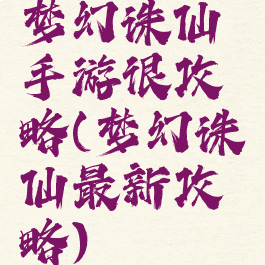 梦幻诛仙
手游很攻
略(梦幻诛
仙最新攻
略)